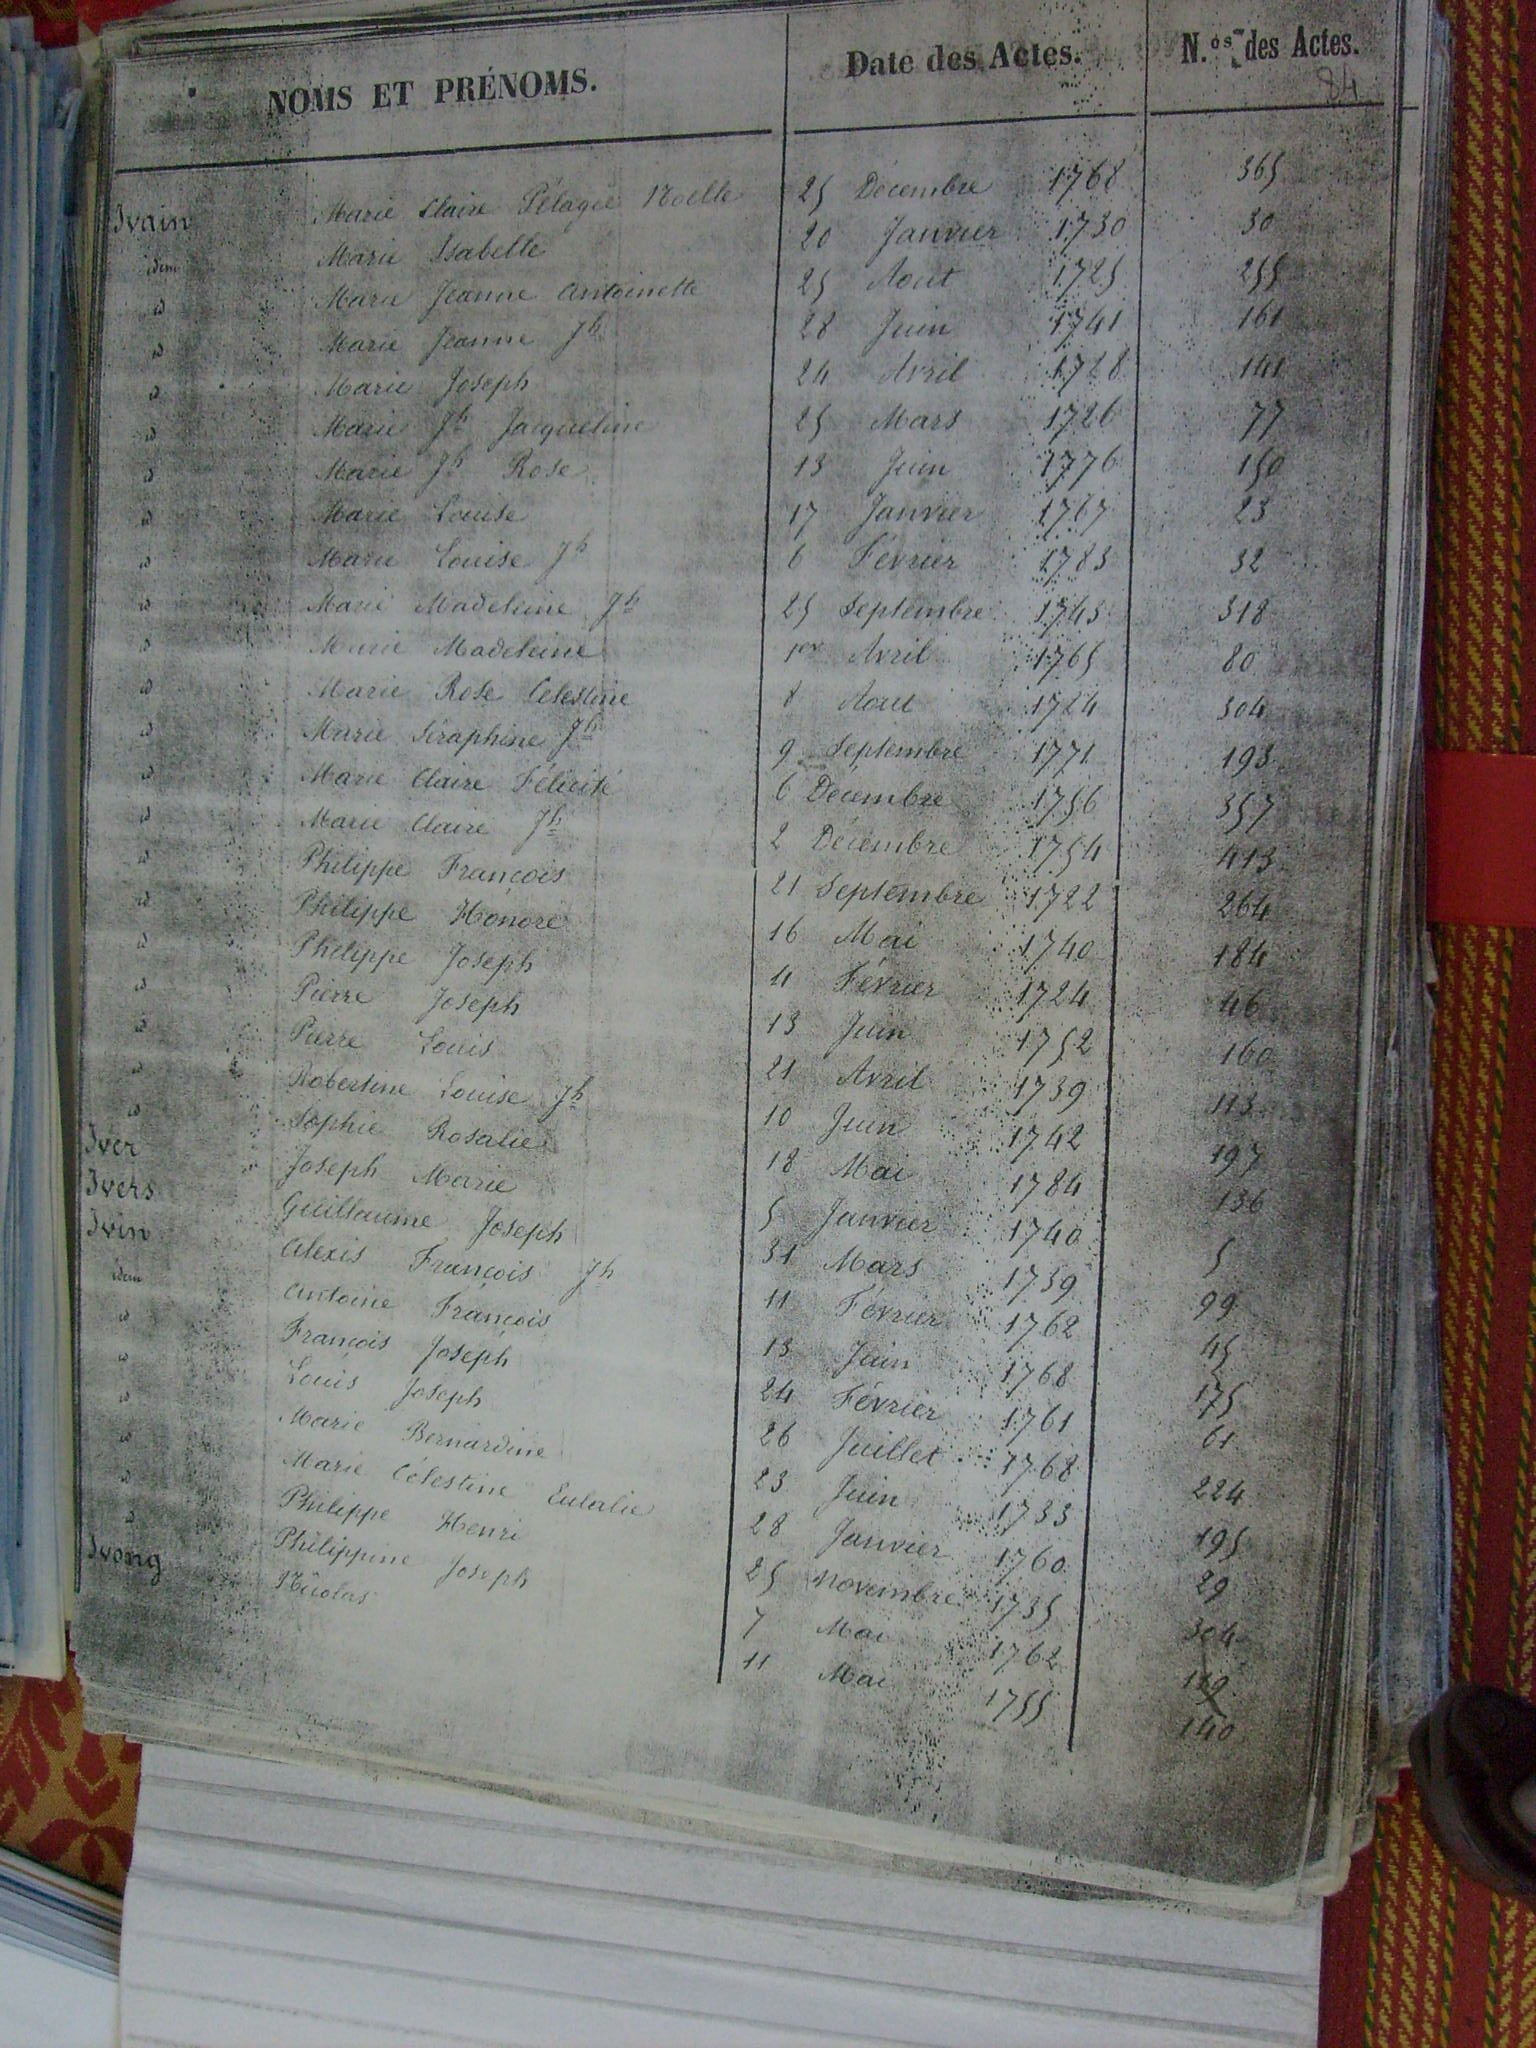 NOMS ET PRÉNOMS. Date des Actes. N.os des Actes.
84
Ivain Marie Claire Pélagie Noelle 25 Décembre 1768 365
idem Marie Isabelle 20 Janvier 1730 30
id Marie Jeanne Antoinette 25 Aout 1725 255
id Marie Jeanne Jh 28 Juin 1741 161
id Marie Joseph 24 Avril 1728 141
id Marie Jh Jacqueline 25 Mars 1726 77
id Marie Jh Rose 13 Juin 1776 150
id Marie Louise 17 Janvier 1767 23
id Marie Louise Jh 6 Février 1783 32
id Marie Madeleine Jh 25 Septembre 1743 318
id Marie Madeleine 1er Avril 1765 80
id Marie Rose Celestine 8 Aout 1724 304
id Marie Séraphine Jh 9 Septembre 1771 193
id Marie Claire Félicité 6 Décembre 1756 357
id Marie Claire Jh 2 Décembre 1754 413
id Philippe François 21 Septembre 1722 264
id Philippe Honoré 16 Mai 1740 184
id Philippe Joseph 11 Février 1724 46
id Pierre Joseph 13 Juin 1752 160
id Pierre Louis 21 Avril 1739 113
id Robertine Louise Jh 10 Juin 1742 197
id Sophie Rosalie 18 Mai 1784 136
Iver Joseph Marie 5 Janvier 1740 5
Ivers Guillaume Joseph 31 Mars 1739 99
Ivin Alexis François Jh 11 Février 1762 45
idem Antoine François 13 Juin 1768 175
id François Joseph 24 Février 1761 61
id Louis Joseph 26 Juillet 1768 224
id Marie Bernardine 23 Juin 1733 195
id Marie Célestine Eulalie 28 Janvier 1760 29
id Philippe Henri 25 novembre 1735 304
id Philippine Joseph 7 Mai 1762
Ivong Nicolas 11 Mai 1755 140